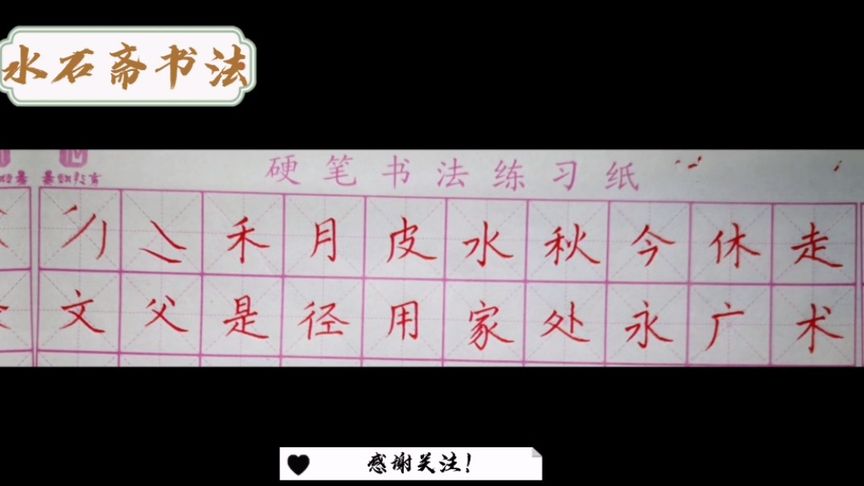 水石斋书法
硬笔书法练习纸
禾月皮水秋今休走
文父是径用家处永广术
感谢关注!